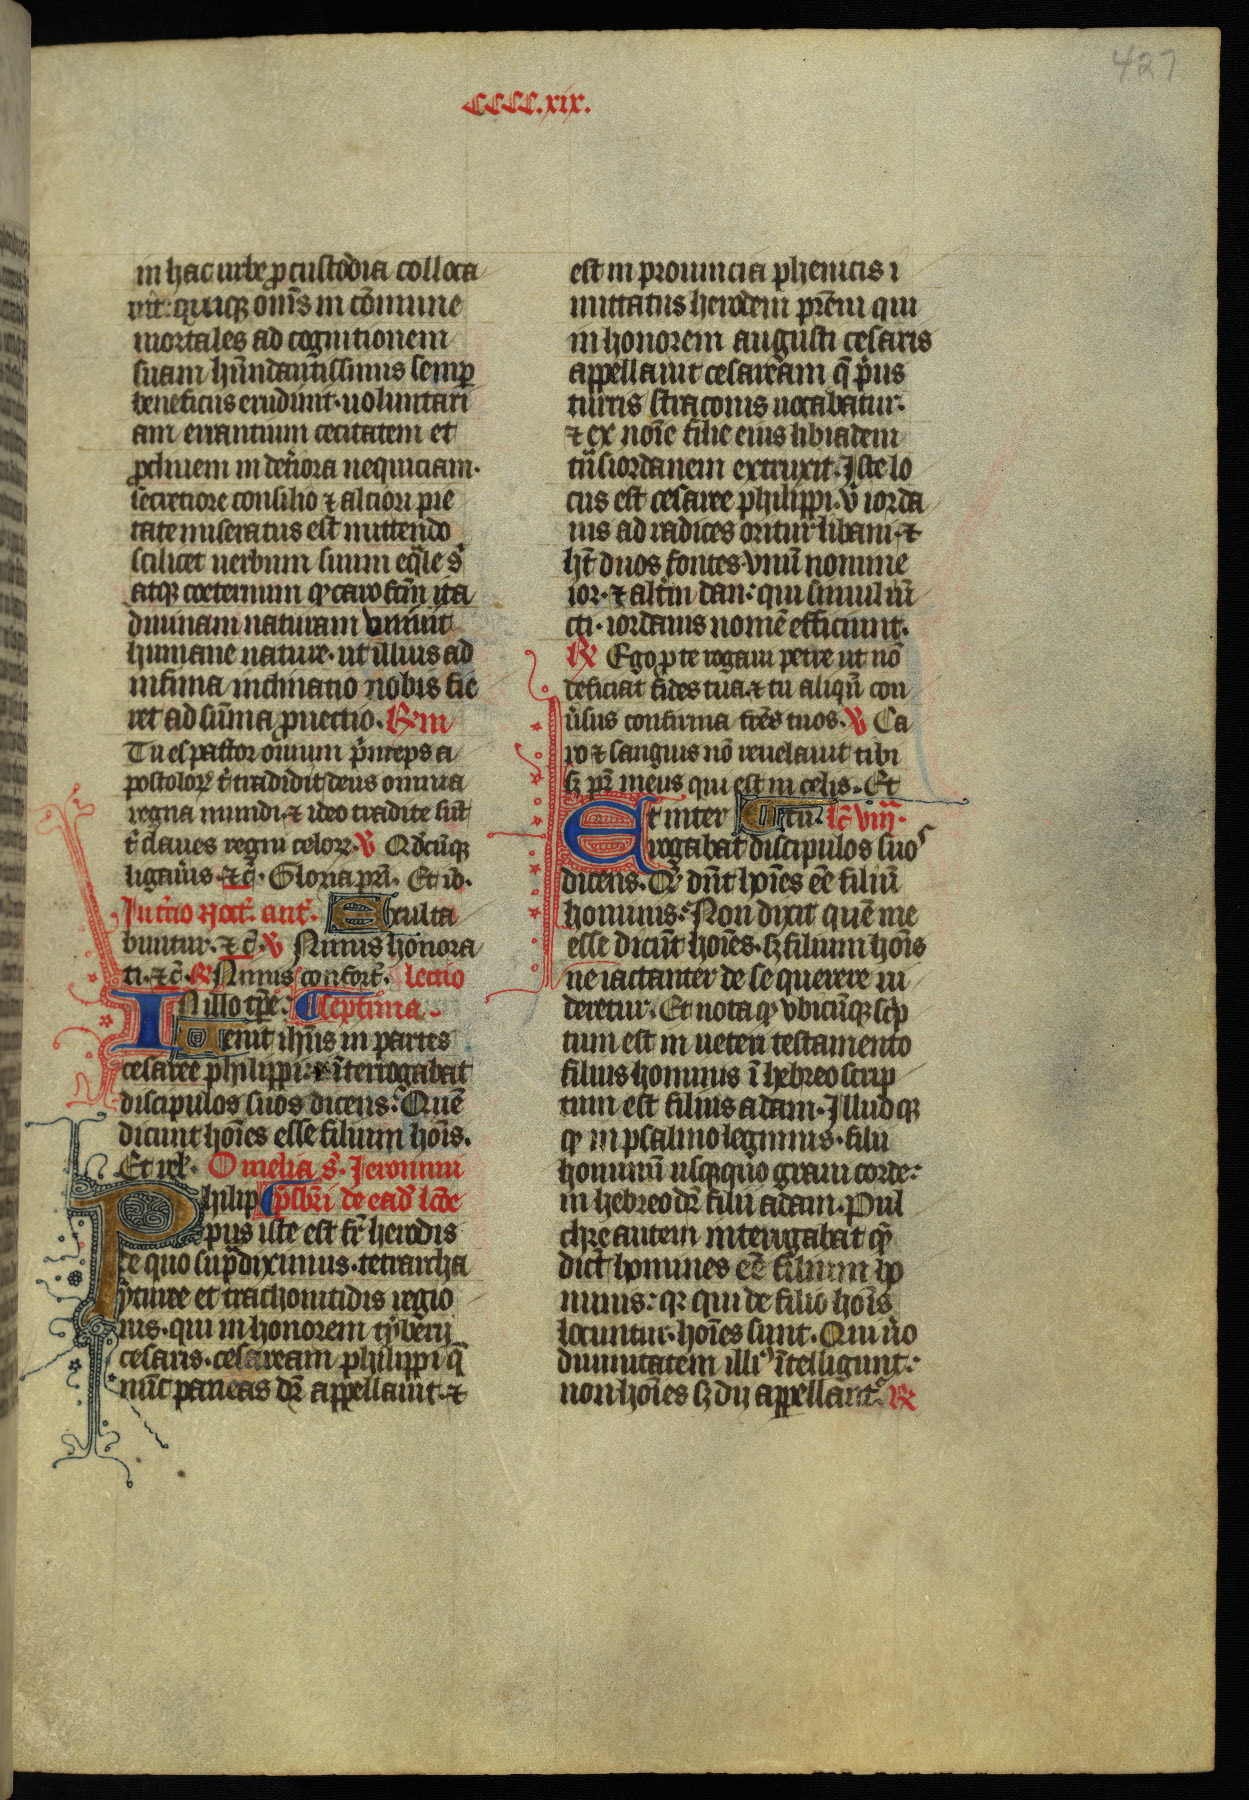 427
CCCC.xix.
in hac urbe ꝓ custodia colloca
uit: quiqꝫ om̅s in co̅mune
mortales ad cognitionem
suam hu̅ndantissimus semꝑ
beneficus erudiuit· uoluntari
am errantium cecitatem et
ꝓcliuem in det̾iora nequiciam·
secretiore consilio ⁊ alciori pie
tate miseratus est mittendo
scilicet uerbum suum eq̅le s̾
atqꝫ coeternum ꝙ caro fc̅m ita
diuinam naturam uniuit
humane nature· ut illius ad
infima inclinatio nobis fie
ret ad su̅ma ꝓuectio. ℟m
Tu es pastor ouium p̾nceps a
postoloꝝ t̾ tradidit deus omnia
regna mundi· ⁊ ideo tradite su̅t
t̾ claues regni celoꝝ· ℣ Qdcu̅qꝫ
ligau̾is ⁊c̅· Gloria pr̅i· Et id̅·
In t̾cio noct̅· ant̅· Exulta
buntur· ⁊c̅· ℣ Nimis honora
ti· ⁊c̅· ℟ Nimis confort̅· lectio
In illo tp̅e: septima·
Uenit ih̅us in partes
cesaree philippi: ⁊ i̅terrogabat
discipulos suos dicens: Que̅
dicunt ho̅ies esse filium ho̅is.
Et rel̅· Omelia s̅· Jeronimi
Philip pb̅ri de ead̅ lc̅oe
pus iste est fr̅ herodis
de quo sup̾ diximus· tetrarcha
yturee et trachonitidis regio
nis· qui in honorem tyberij
cesaris· cesaream philippi q̅
nu̅c paneas dr̅ appellauit· ⁊
est in prouincia phenicis i
mittatus herodem pr̅em qui
in honorem augusti cesaris
appellauit cesaream q̅ p̾us
turris straconis uocabatur·
⁊ ex no̅ie filie eius libiadem
tn̅s iordanem extruxit. Iste lo
cus est cesaree philippi· u̾ iorda
nis ad radices oritur libani· ⁊
ht̅ duos fontes· unu̅ nomine
ior· ⁊ alt̾m dan: qui simul iu̅
cti· iordanis nome̅ efficiunt·
℟ Ego ꝓ te rogaui petre ut no̅
deficiat fides tua· ⁊ tu aliqn̅ con
u̾sus confirma fr̅es tuos· ℣ Ca
ro ⁊ sanguis no̅ reuelauit tibi
sꝫ pr̅ meus qui est in celis· Et
Et inter Tu lc̅ viii·
rogabat discipulos suos
dicens· Que̅ dn̅t ho̅ies ee̅ filiu̅
hominis: Non dixit que̅ me
esse dicu̅t ho̅ies· sꝫ filium ho̅is
ne iactanter de se querere ui
deretur· Et nota ꝙ ubicu̅qꝫ sc̾p
tum est in ueteri testamento
filius hominis i̅ hebreo scrip
tum est filius adam· Illudqꝫ
ꝙ in psalmo legimus· filii
hominu̅ usqꝫquo graui corde:
in hebreo dr̅ filii adam· Pul
chre autem interrogabat ꝙ
dict̅ homines ee̅ filium ho
minis: qꝛ qui de filio ho̅is
locuntur· ho̅ies sunt· Qui u̾o
diuinitatem illiꝰ i̅telligunt:
non ho̅ies sꝫ dij appella̅nt̾· ℟